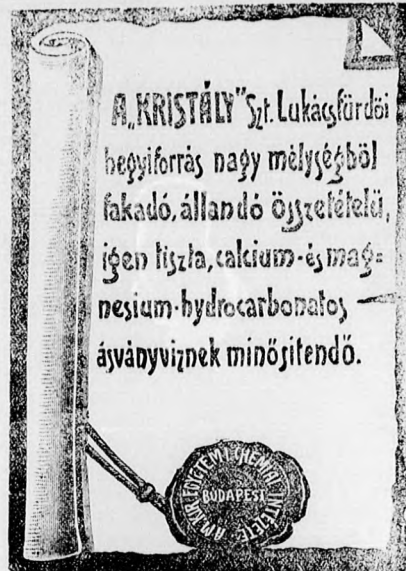 A „KRISTÁLY” Szt. Lukácsfürdői
hegyiforrás nagy mélységből
fakadó, állandó összetételű,
igen tiszta, calcium- és mag=
nesium-hydrocarbonatos
ásványvíznek minősítendő.
A M. KIR. EGYETEM I. CHEMIAI INTÉZETE
BUDAPEST